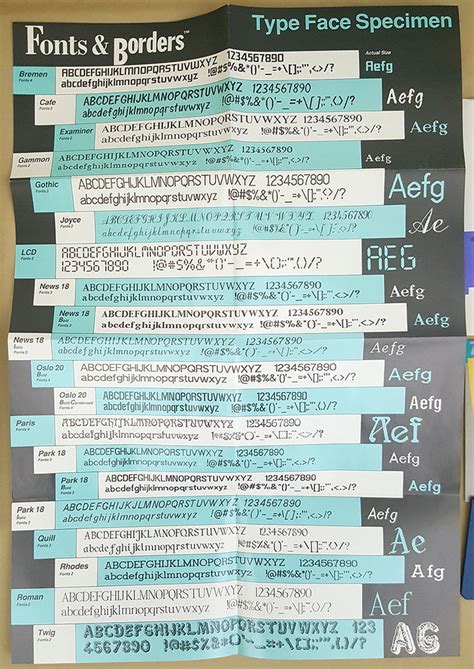 Fonts & Borders™
Type Face Specimen
ABCDEFGHIJKLMNOPQRSTUVWXYZ 1234567890 Actual Size
Bremen
Fonts 4
abcdefghijklmnopqrstuvwxyz !@#$%&*()'-_=+\[];:'",<.>/? Aefg
Cafe
ABCDEFGHIJKLMNOPQRSTUVWXYZ 1234567890
abcdefghijklmnopqrstuvwxyz !@#$%&*()'-_=+\[];:'",<.>/? Aefg
Examiner
ABCDEFGHIJKLMNOPQRSTUVWXYZ 1234567890
abcdefghijklmnopqrstuvwxyz Aefg
Gammon
ABCDEFGHIJKLMNOPQRSTUVWXYZ 1234567890
abcdefghijklmnopqrstuvwxyz Aefg
Gothic
ABCDEFGHIJKLMNOPQRSTUVWXYZ 1234567890
abcdefghijklmnopqrstuvwxyz Aefg
Joyce
ABCDEFGHIJKLMNOPQRSTUVWXYZ 1234567890
abcdefghijklmnopqrstuvwxyz Ae
LCD
Fonts 2
ABCDEFGHIJKLMNOPQRSTUVWXYZ
1234567890 AEG
News 18
Bold
ABCDEFGHIJKLMNOPQRSTUVWXYZ 1234567890
abcdefghijklmnopqrstuvwxyz Aefg
News 18
Bold
ABCDEFGHIJKLMNOPQRSTUVWXYZ 1234567890
abcdefghijklmnopqrstuvwxyz Aefg
News 18
ABCDEFGHIJKLMNOPQRSTUVWXYZ 1234567890
abcdefghijklmnopqrstuvwxyz Aefg
Oslo 20
Bold
ABCDEFGHIJKLMNOPQRSTUVWXYZ 1234567890
abcdefghijklmnopqrstuvwxyz Aefg
Oslo 20
Bold Condensed
ABCDEFGHIJKLMNOPQRSTUVWXYZ 1234567890
abcdefghijklmnopqrstuvwxyz Aefg
Paris
Fonts 4
ABCDEFGHIJKLMNOPQRSTUVWXYZ 1234567890
abcdefghijklmnopqrstuvwxyz Aef
Park 18
ABCDEFGHIJKLMNOPQRSTUVWXYZ 1234567890
abcdefghijklmnopqrstuvwxyz Aefg
Park 18
Bold
ABCDEFGHIJKLMNOPQRSTUVWXYZ 1234567890
abcdefghijklmnopqrstuvwxyz Aefg
Park 18
ABCDEFGHIJKLMNOPQRSTUVWXYZ 1234567890
abcdefghijklmnopqrstuvwxyz Aefg
Quill
ABCDEFGHIJKLMNOPQRSTUVWXYZ 1234567890
abcdefghijklmnopqrstuvwxyz Ae
Rhodes
ABCDEFGHIJKLMNOPQRSTUVWXYZ 1234567890
abcdefghijklmnopqrstuvwxyz Afg
Roman
Fonts 2
ABCDEFGHIJKLMNOPQRSTUVWXYZ 1234567890
abcdefghijklmnopqrstuvwxyz Aef
Twig
Fonts 2
ABCDEFGHIJKLMNOPQRSTUVWXYZ 123
4567890 AG